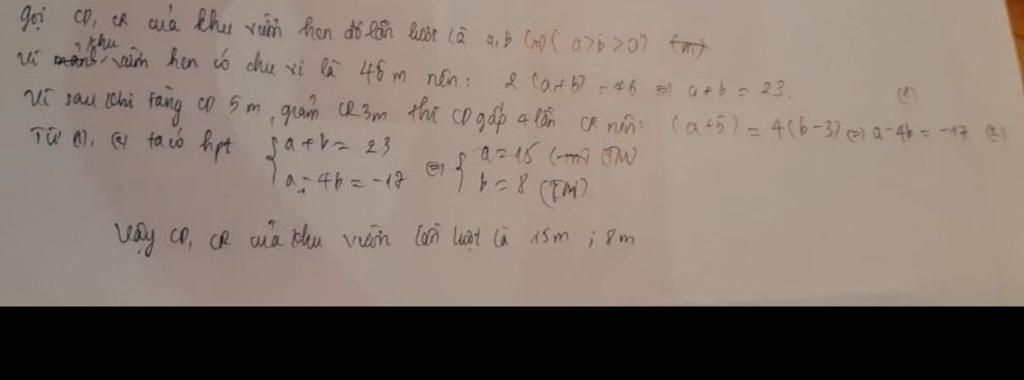 Gọi CD, CR của khu vườn hcn đó lần lượt là a, b (m) (a>b>0)
khu
Vì vườn hcn có chu vi là 46 m nên: 2(a+b) = 46 ⇔ a+b = 23. (1)
Vì sau khi tăng CD 5m, giảm CR 3m thì CD gấp 4 lần CR nên: (a+5) = 4(b-3) ⇔ a-4b = -17 (2)
Từ (1), (2) ta có hpt { a+b = 23 ⇔ { a = 15 (TM)
a - 4b = -17 b = 8 (TM)
Vậy CD, CR của khu vườn lần lượt là 15m ; 8m